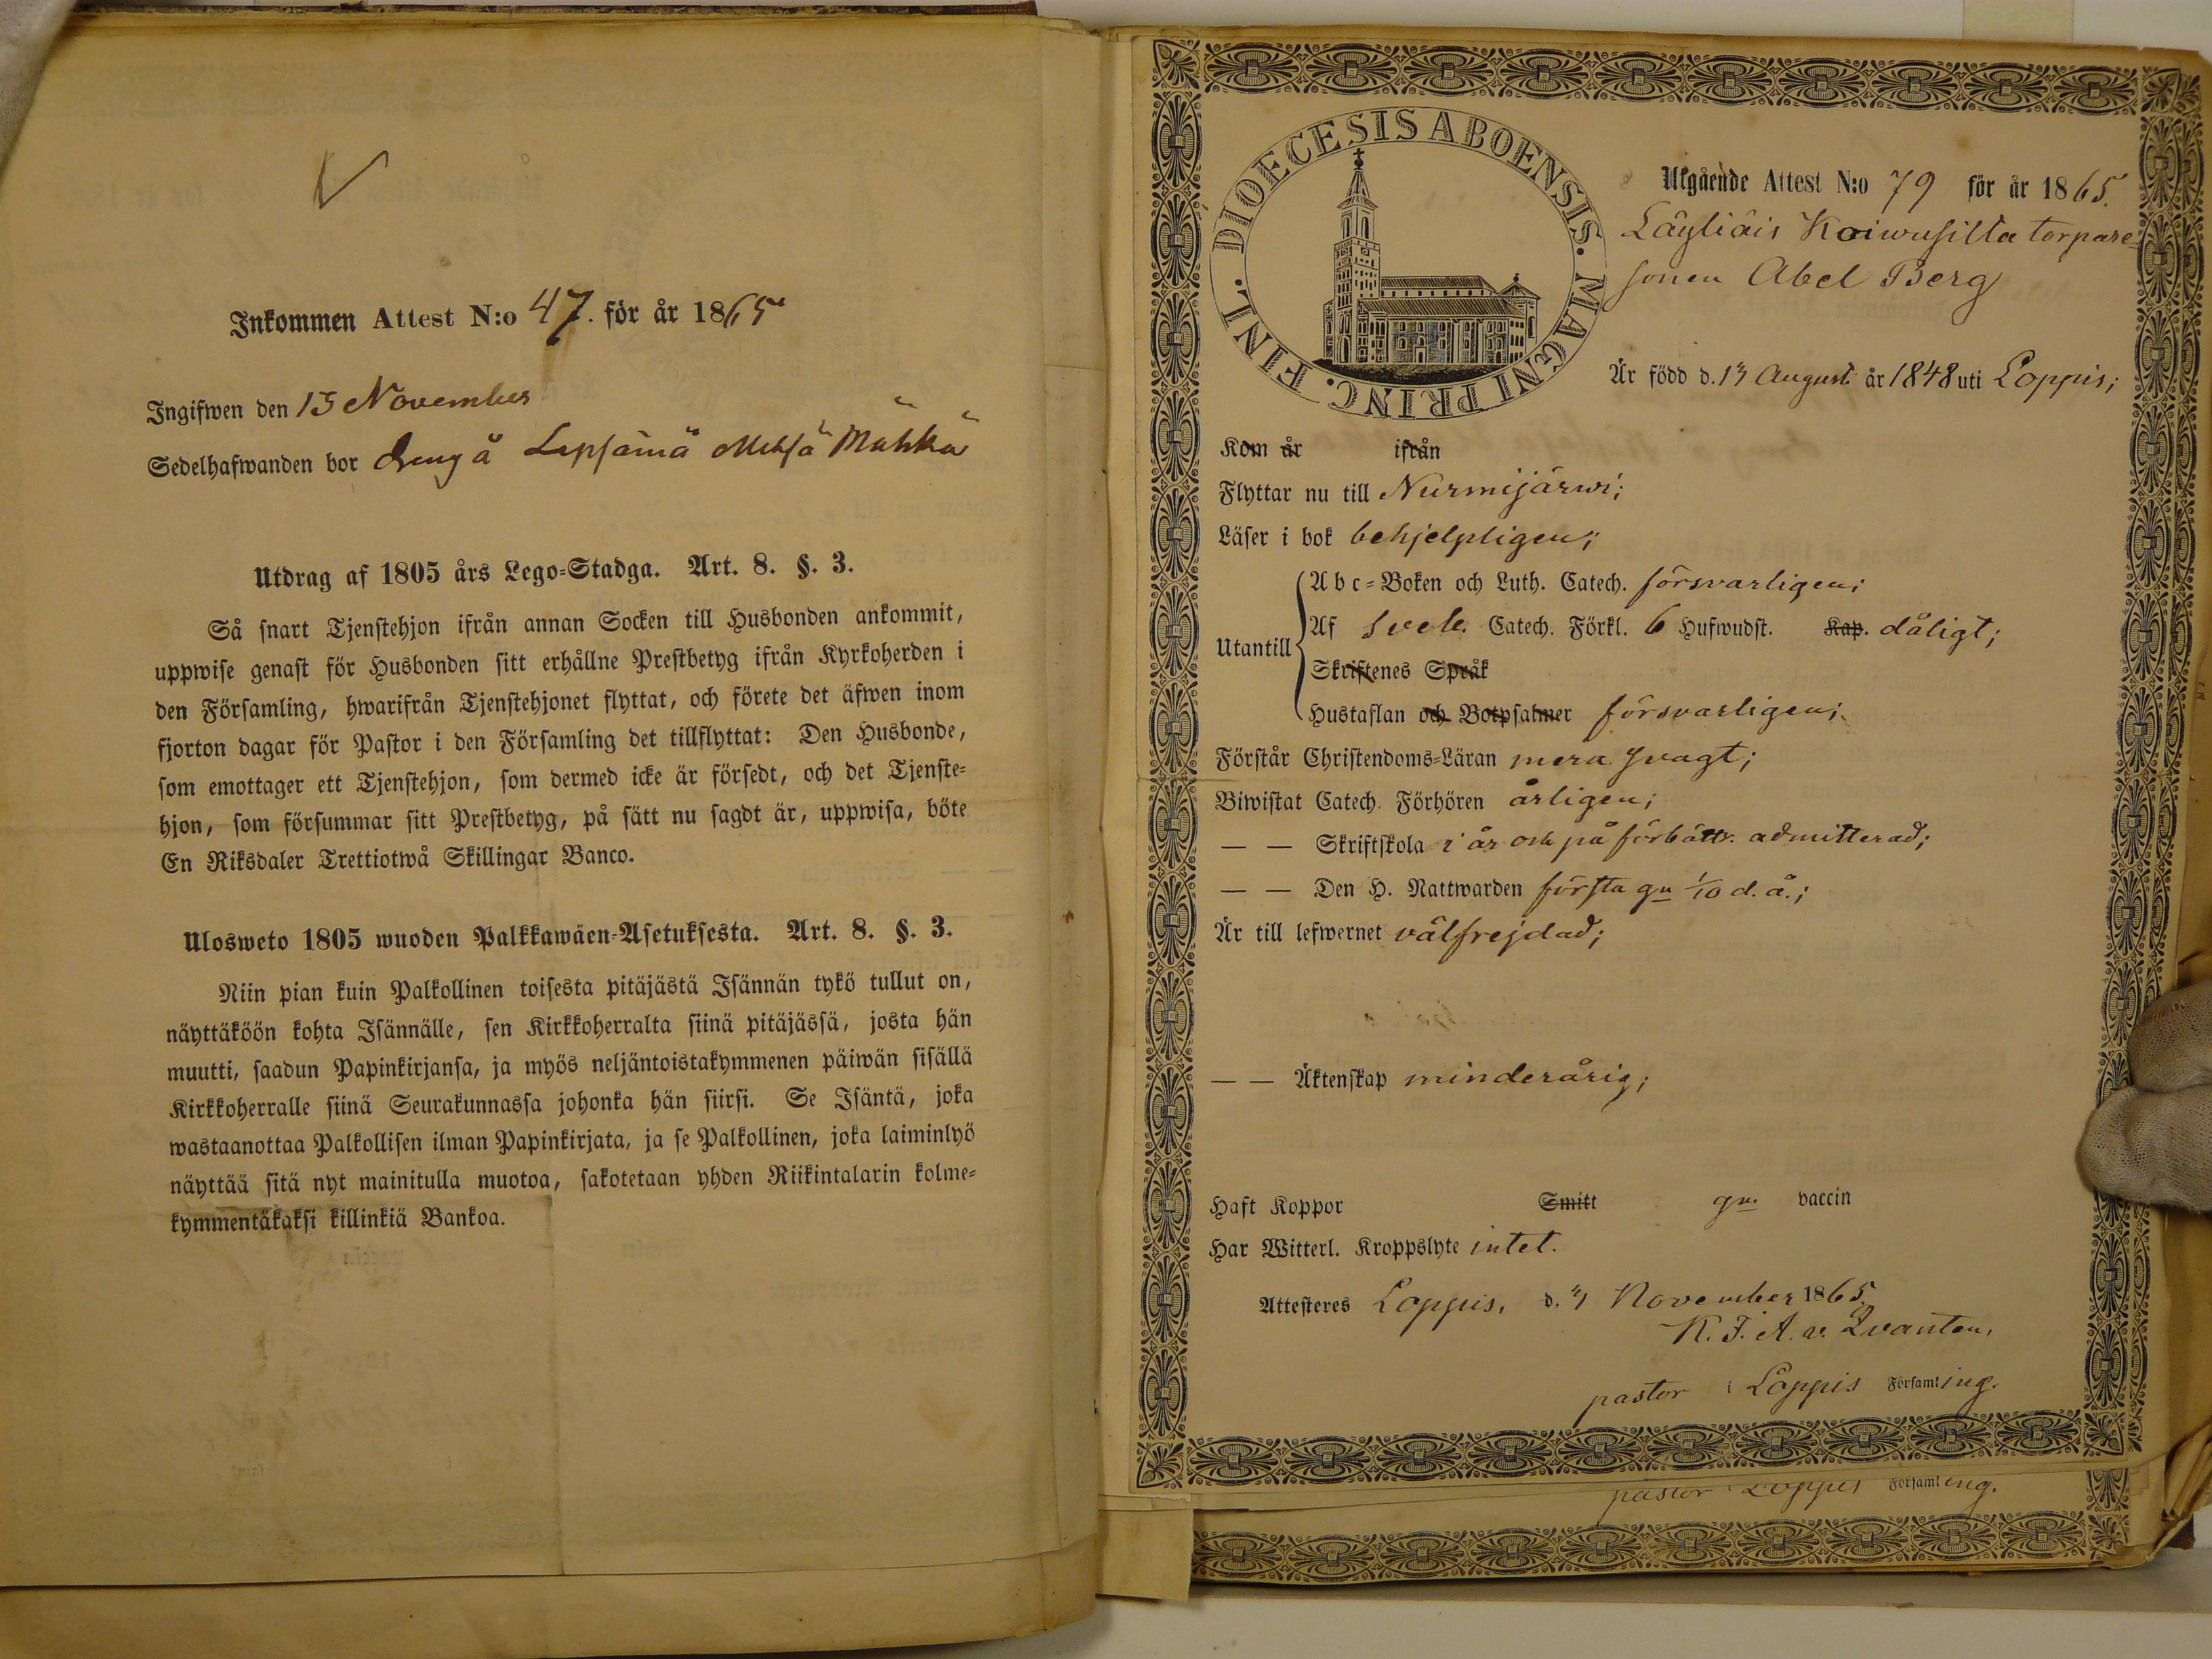 Inkommen Attest N:o 47. för år 1865
Ingifwen den 13 November
Sedelhafwanden bor dreng å Lepsämä Mehsä Mähkä
Utdrag af 1805 års Lego-Stadga. Art. 8. §. 3.
Så snart Tjenstehjon ifrån annan Socken till Husbonden ankommit,
uppwise genast för Husbonden sitt erhållne Prestbetyg ifrån Kyrkoherden i
den Församling, hwarifrån Tjenstehjonet flyttat, och förete det äfwen inom
fjorton dagar för Pastor i den Församling det tillflyttat: Den Husbonde,
som emottager ett Tjenstehjon, som dermed icke är försedt, och det Tjenste-
hjon, som försummar sitt Prestbetyg, på sätt nu sagdt är, uppwisa, böte
En Riksdaler Trettiotwå Skillingar Banco.
Ulosweto 1805 wuoden Palkkawäen-Asetuksesta. Art. 8. §. 3.
Niin pian kuin Palkollinen toisesta pitäjästä Isännän tykö tullut on,
näyttäköön kohta Isännälle, sen Kirkkoherralta siinä pitäjässä, josta hän
muutti, saadun Papinkirjansa, ja myös neljäntoistakymmenen päiwän sisällä
Kirkkoherralle siinä Seurakunnassa johonka hän siirsi. Se Isäntä, joka
wastaanottaa Palkollisen ilman Papinkirjata, ja se Palkollinen, joka laiminlyö
näyttää sitä nyt mainitulla muotoa, sakotetaan yhden Riikintalarin kolme-
kymmentäkaksi killinkiä Bankoa.
DIOECESIS ABOENSIS. MAGNI PRINC. FINL.
Utgående Attest N:o 79 för år 1865.
Läyliäis Koiwusilta torpare-
sonen Abel Berg
Är född d. 13 August. år 1848 uti Loppis;
Kom år ifrån
Flyttar nu till Nurmijärwi;
Läser i bok behjelpligen;
Utantill
Abc-Boken och Luth. Catech. försvarligen;
Af Sveb. Catech. Förkl. 6 Hufwudst. Kap. dåligt;
Skriftenes Språk
Hustaflan och Botpsalmer försvarligen;
Förstår Christendoms-Läran mera svagt;
Biwistat Catech. Förhören årligen;
— — Skriftskola i år och på förbättr. admitterad;
— — Den H. Nattwarden första gn 1/10 d. å.;
Är till lefwernet välfrejdad;
— — Äktenskap minderårig;
Haft Koppor Smitt gm. vaccin
Har Witterl. Kroppslyte intet.
Attesteres Loppis, d. November 1865
K. F. A. v. Qvanten,
pastor i Loppis Församling.
pastor i Loppis Församling.